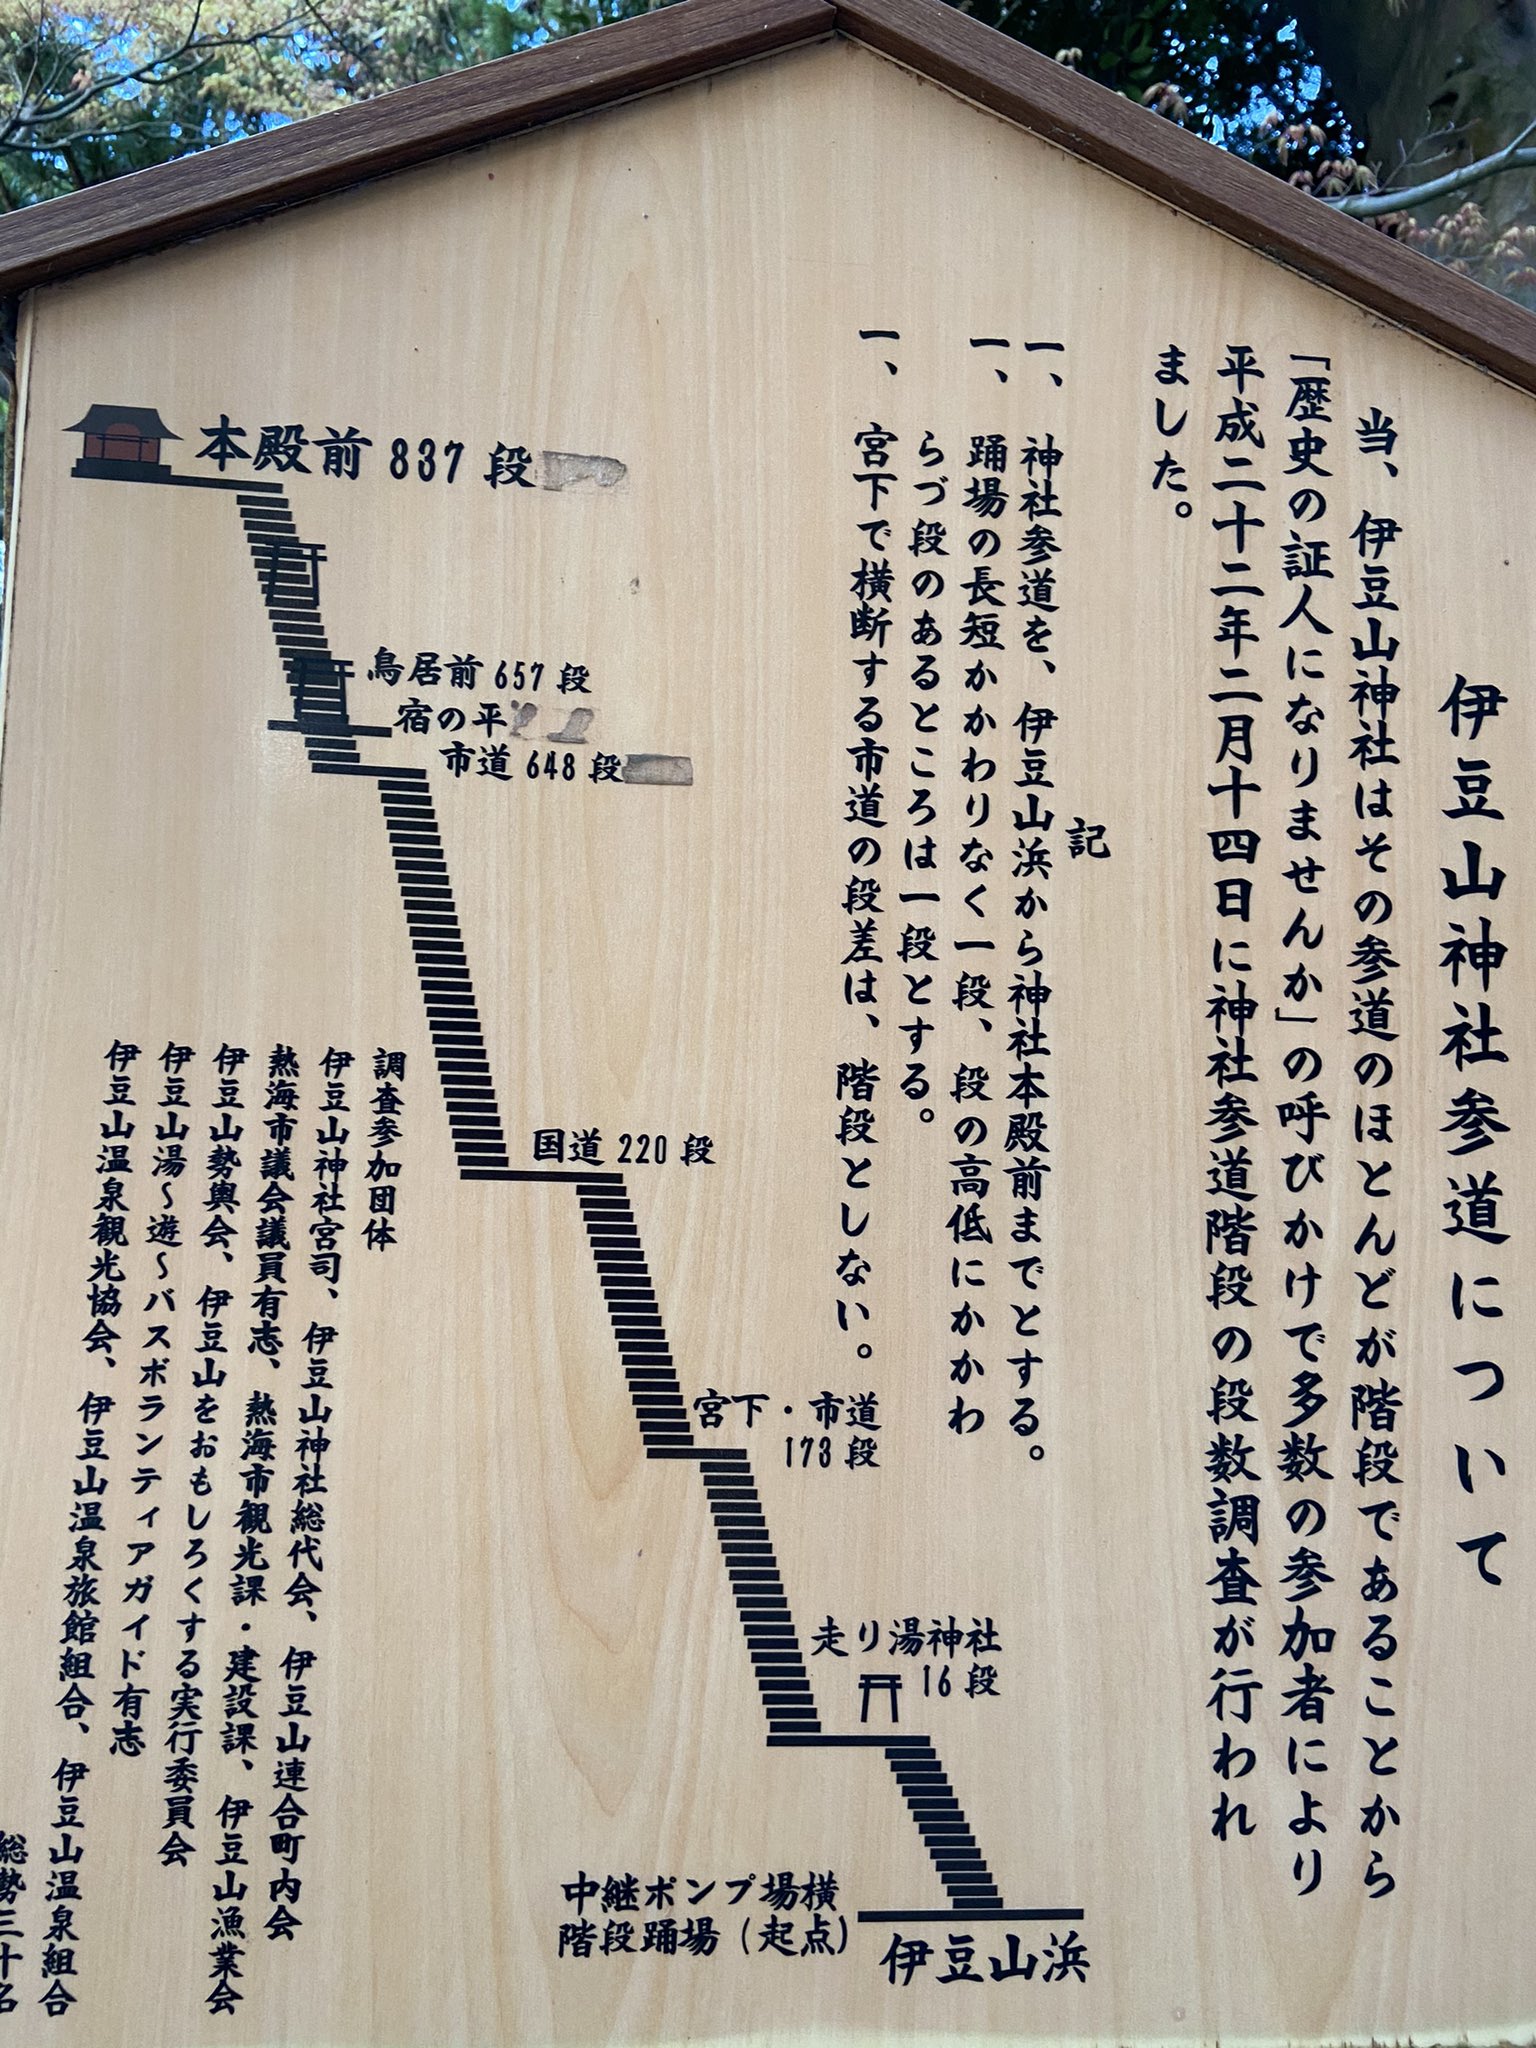 伊豆山神社参道について
当、伊豆山神社はその参道のほとんどが階段であることから
「歴史の証人になりませんか」の呼びかけで多数の参加者により
平成二十二年二月十四日に神社参道階段の段数調査が行われ
ました。
記
一、神社参道を、伊豆山浜から神社本殿前までとする。
一、踊場の長短かかわりなく一段、段の高低にかかわ
らづ段のあるところは一段とする。
一、宮下で横断する市道の段差は、階段としない。
本殿前 837 段
鳥居前 657 段
宿の平
市道 648 段
国道 220 段
宮下・市道
173 段
走り湯神社
16 段
中継ポンプ場横
階段踊場（起点）
伊豆山浜
調査参加団体
伊豆山神社宮司、伊豆山神社総代会、伊豆山連合町内会
熱海市議会議員有志、熱海市観光課・建設課、伊豆山漁業会
伊豆山勢輿会、伊豆山をおもしろくする実行委員会
伊豆山湯～遊～バスボランティアガイド有志
伊豆山温泉観光協会、伊豆山温泉旅館組合、伊豆山温泉組合
総勢三十名